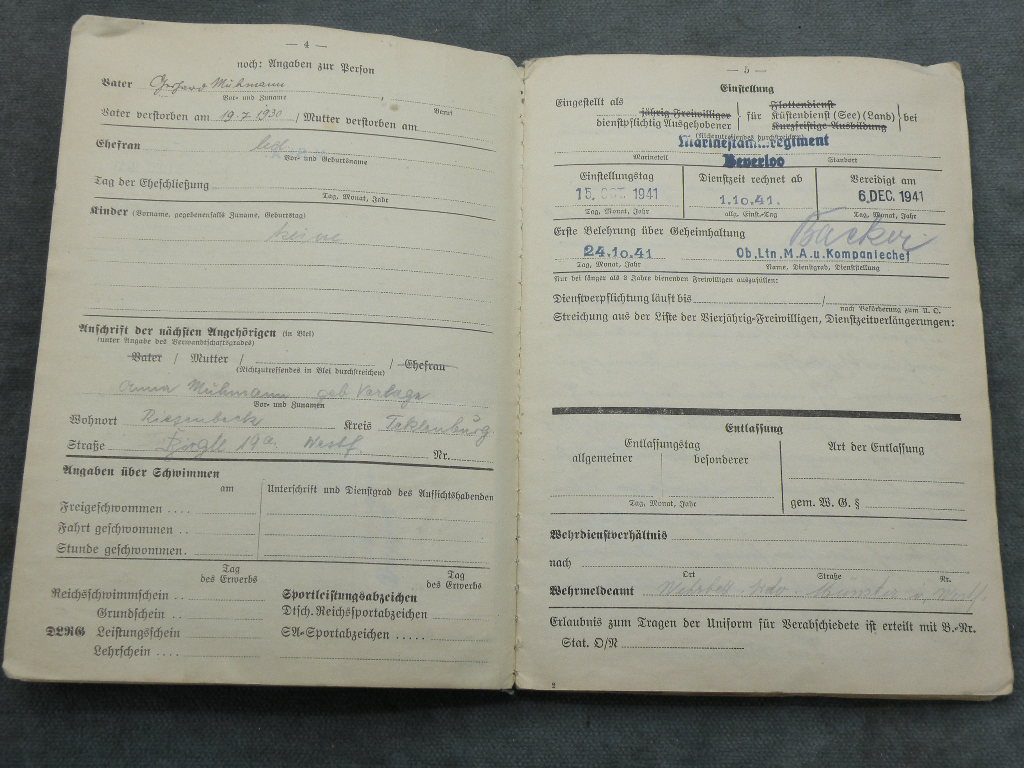 — 4 —
noch: Angaben zur Person
Vater Gerhard Mühmann,
Vor- und Zuname Beruf
Vater verstorben am 19.7.1930 / Mutter verstorben am
Ehefrau led
Vor- und Geburtsname
Tag der Eheschließung
Tag, Monat, Jahr
Kinder (Vorname, gegebenenfalls Zuname, Geburtstag)
keine
Anschrift der nächsten Angehörigen (in Blei)
(unter Angabe des Verwandtschaftsgrades)
Vater / Mutter / / Ehefrau
(Nichtzutreffendes in Blei durchstreichen)
Anna Mühmann geb Verlage
Vor- und Zunamen
Wohnort Riesenbeck Kreis Teklenburg
Straße 19a Westf Nr.
Angaben über Schwimmen
am Unterschrift und Dienstgrad des Aufsichtshabenden
Freigeschwommen ....
Fahrt geschwommen ..
Stunde geschwommen.
Tag des Erwerbs Tag des Erwerbs
Reichsschwimmschein .. Sportleistungsabzeichen
Grundschein .... Dtsch. Reichssportabzeichen
DLRG Leistungsschein SA-Sportabzeichen .....
Lehrschein ....
— 5 —
Einstellung
Eingestellt als jährig Freiwilliger dienstpflichtig Ausgehobener für Flottendienst Küstendienst (See) (Land) Kurzfristige Ausbildung bei
(Nichtzutreffendes durchstreichen)
Marinestamm regiment
Beverloo
Marineteil Standort
Einstellungstag Dienstzeit rechnet ab Vereidigt am
15. OKT. 1941 1.10.41. 6. DEZ. 1941
Tag, Monat, Jahr allg. Einst.-Tag Tag, Monat, Jahr
Erste Belehrung über Geheimhaltung Bäcker
24.10.41 Ob.Ltn.M.A.u.Kompaniechef
Tag, Monat, Jahr Name, Dienstgrad, Dienststellung
Nur bei länger als 2 Jahre dienenden Freiwilligen auszufüllen:
Dienstverpflichtung läuft bis /
nach Beförderung zum U. O.
Streichung aus der Liste der Vierjährig-Freiwilligen, Dienstzeitverlängerungen:
Entlassung
Entlassungstag Art der Entlassung
allgemeiner besonderer
Tag, Monat, Jahr gem. W. G. §
Wehrdienstverhältnis
nach
Ort Straße Nr.
Wehrmeldeamt Münster i. Westf
Erlaubnis zum Tragen der Uniform für Verabschiedete ist erteilt mit B.-Nr.
Stat. O/N
2